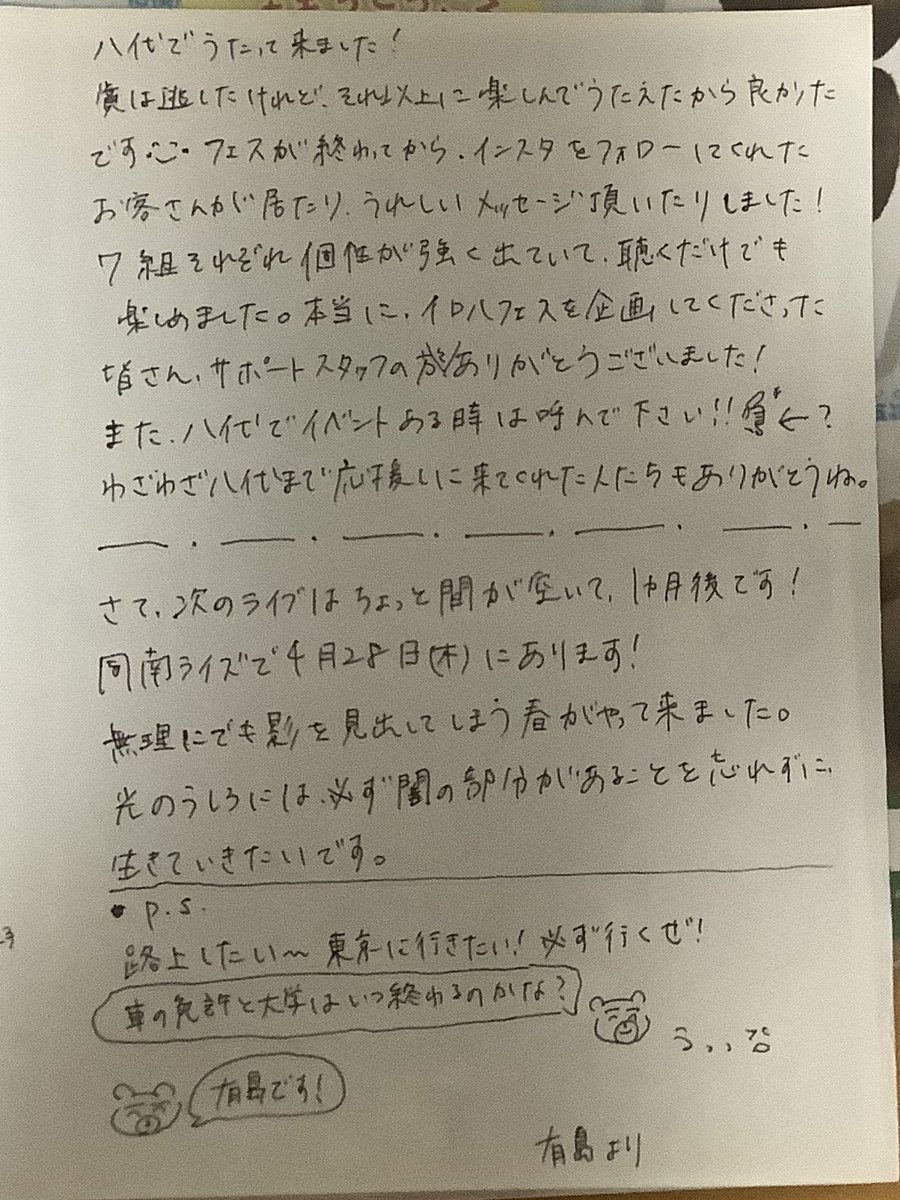 八代でうたって来ました!
賞は逃したけれど、それ以上に楽しんでうたえたから良かった
です フェスが終わってから、インスタをフォローしてくれた
お客さんが居たり、うれしいメッセージ頂いたりしました!
7組それぞれ個性が強く出ていて、聴くだけでも
楽しめました。本当に、イロハフェスを企画してくださった
皆さん、サポートスタッフの ありがとうございました!
また、八代でイベントある時は呼んで下さい!! ←?
わざわざ八代まで応援しに来てくれた人たちもありがとうね。
さて、次のライブはちょっと間が空いて、1カ月後です!
周南ライズで4月28日(木)にあります!
無理にでも影を見出してしまう春がやって来ました。
光のうしろには、必ず闇の部分があることを忘れずに、
生きていきたいです。
• p.s.
路上したい〜 東京に行きたい! 必ず行くぜ!
車の免許と大学はいつ終わるのかな?
有島です!
有島より